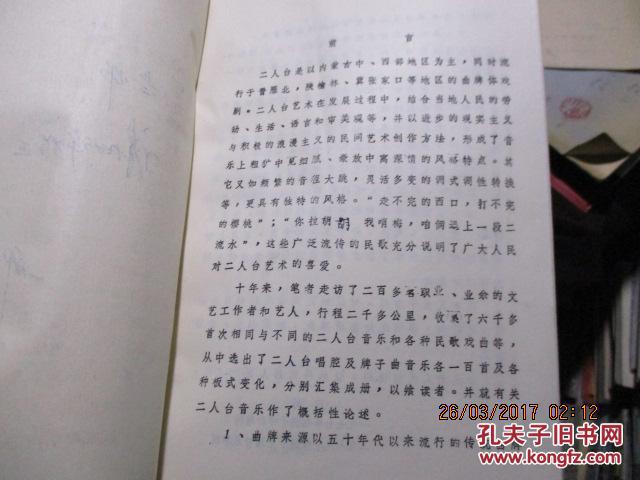 前 言
二人台是以内蒙古中、西部地区为主，同时流
行于晋雁北，陕榆林、冀张家口等地区的曲牌体戏
剧。二人台艺术在发展过程中，结合当地人民的劳
动、生活、语言和审美观等，并以进步的现实主义
与积极的浪漫主义的民间艺术创作方法，形成了音
乐上粗犷中见细腻、豪放中寓深情的风格特点。其
它又如频繁的音程大跳，灵活多变的调式调性转换
等，更具有独特的风格。“走不完的西口，打不完
的樱桃”；“你拉胡胡 我哨梅，咱俩遇上一段二
流水”，这些广泛流传的民歌充分说明了广大人民
对二人台艺术的喜爱。
十年来，笔者走访了二百多名职业、业余的文
艺工作者和艺人，行程二千多公里，收集了六千多
首次相同与不同的二人台音乐和各种民歌戏曲等，
从中选出了二人台唱腔及牌子曲音乐各一百首及各
种板式变化，分别汇集成册，以飨读者。并就有关
二人台音乐作了概括性论述。
1、曲牌来源以五十年代以来流行的传统
26/03/2017 02:12
孔夫子旧书网